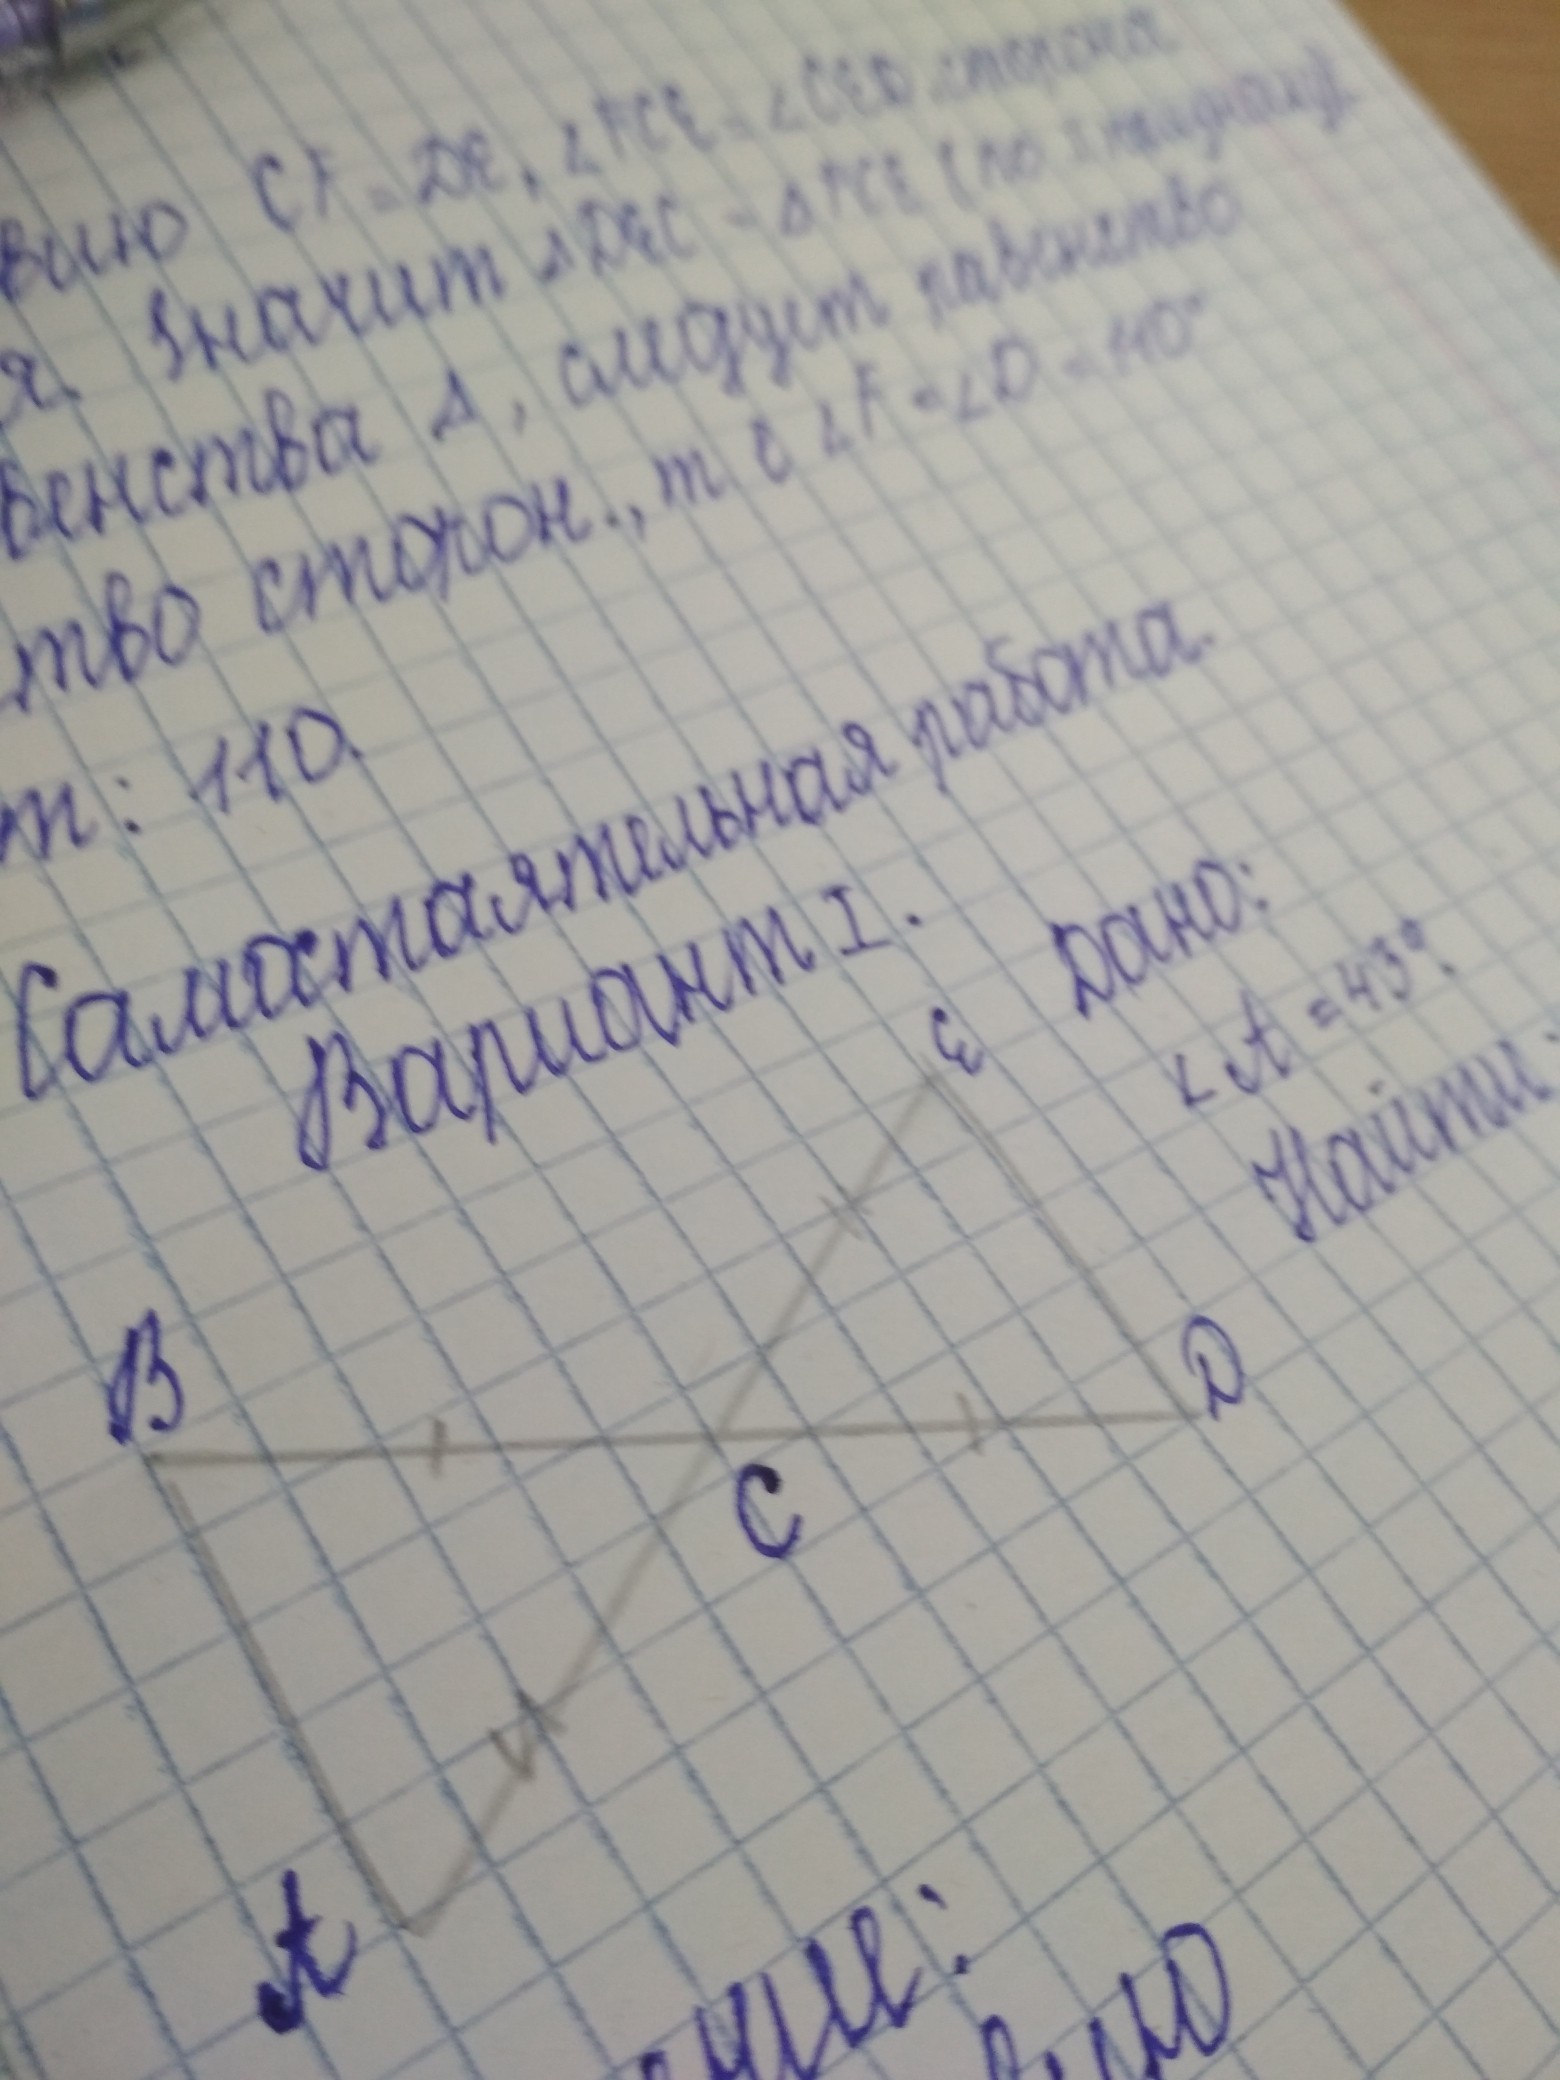 вию CF = DE, ∠FCE = ∠CED сторона
я. Значит △DEC = △FCE (по I признаку)
венства △, следует равенство
тво сторон., т. е ∠F = ∠D = 110°
т: 110.
Самостаятельная работа.
Вариант I.
Дано:
∠A = 43°.
Найти
E
B
D
C
A
ние:
вию